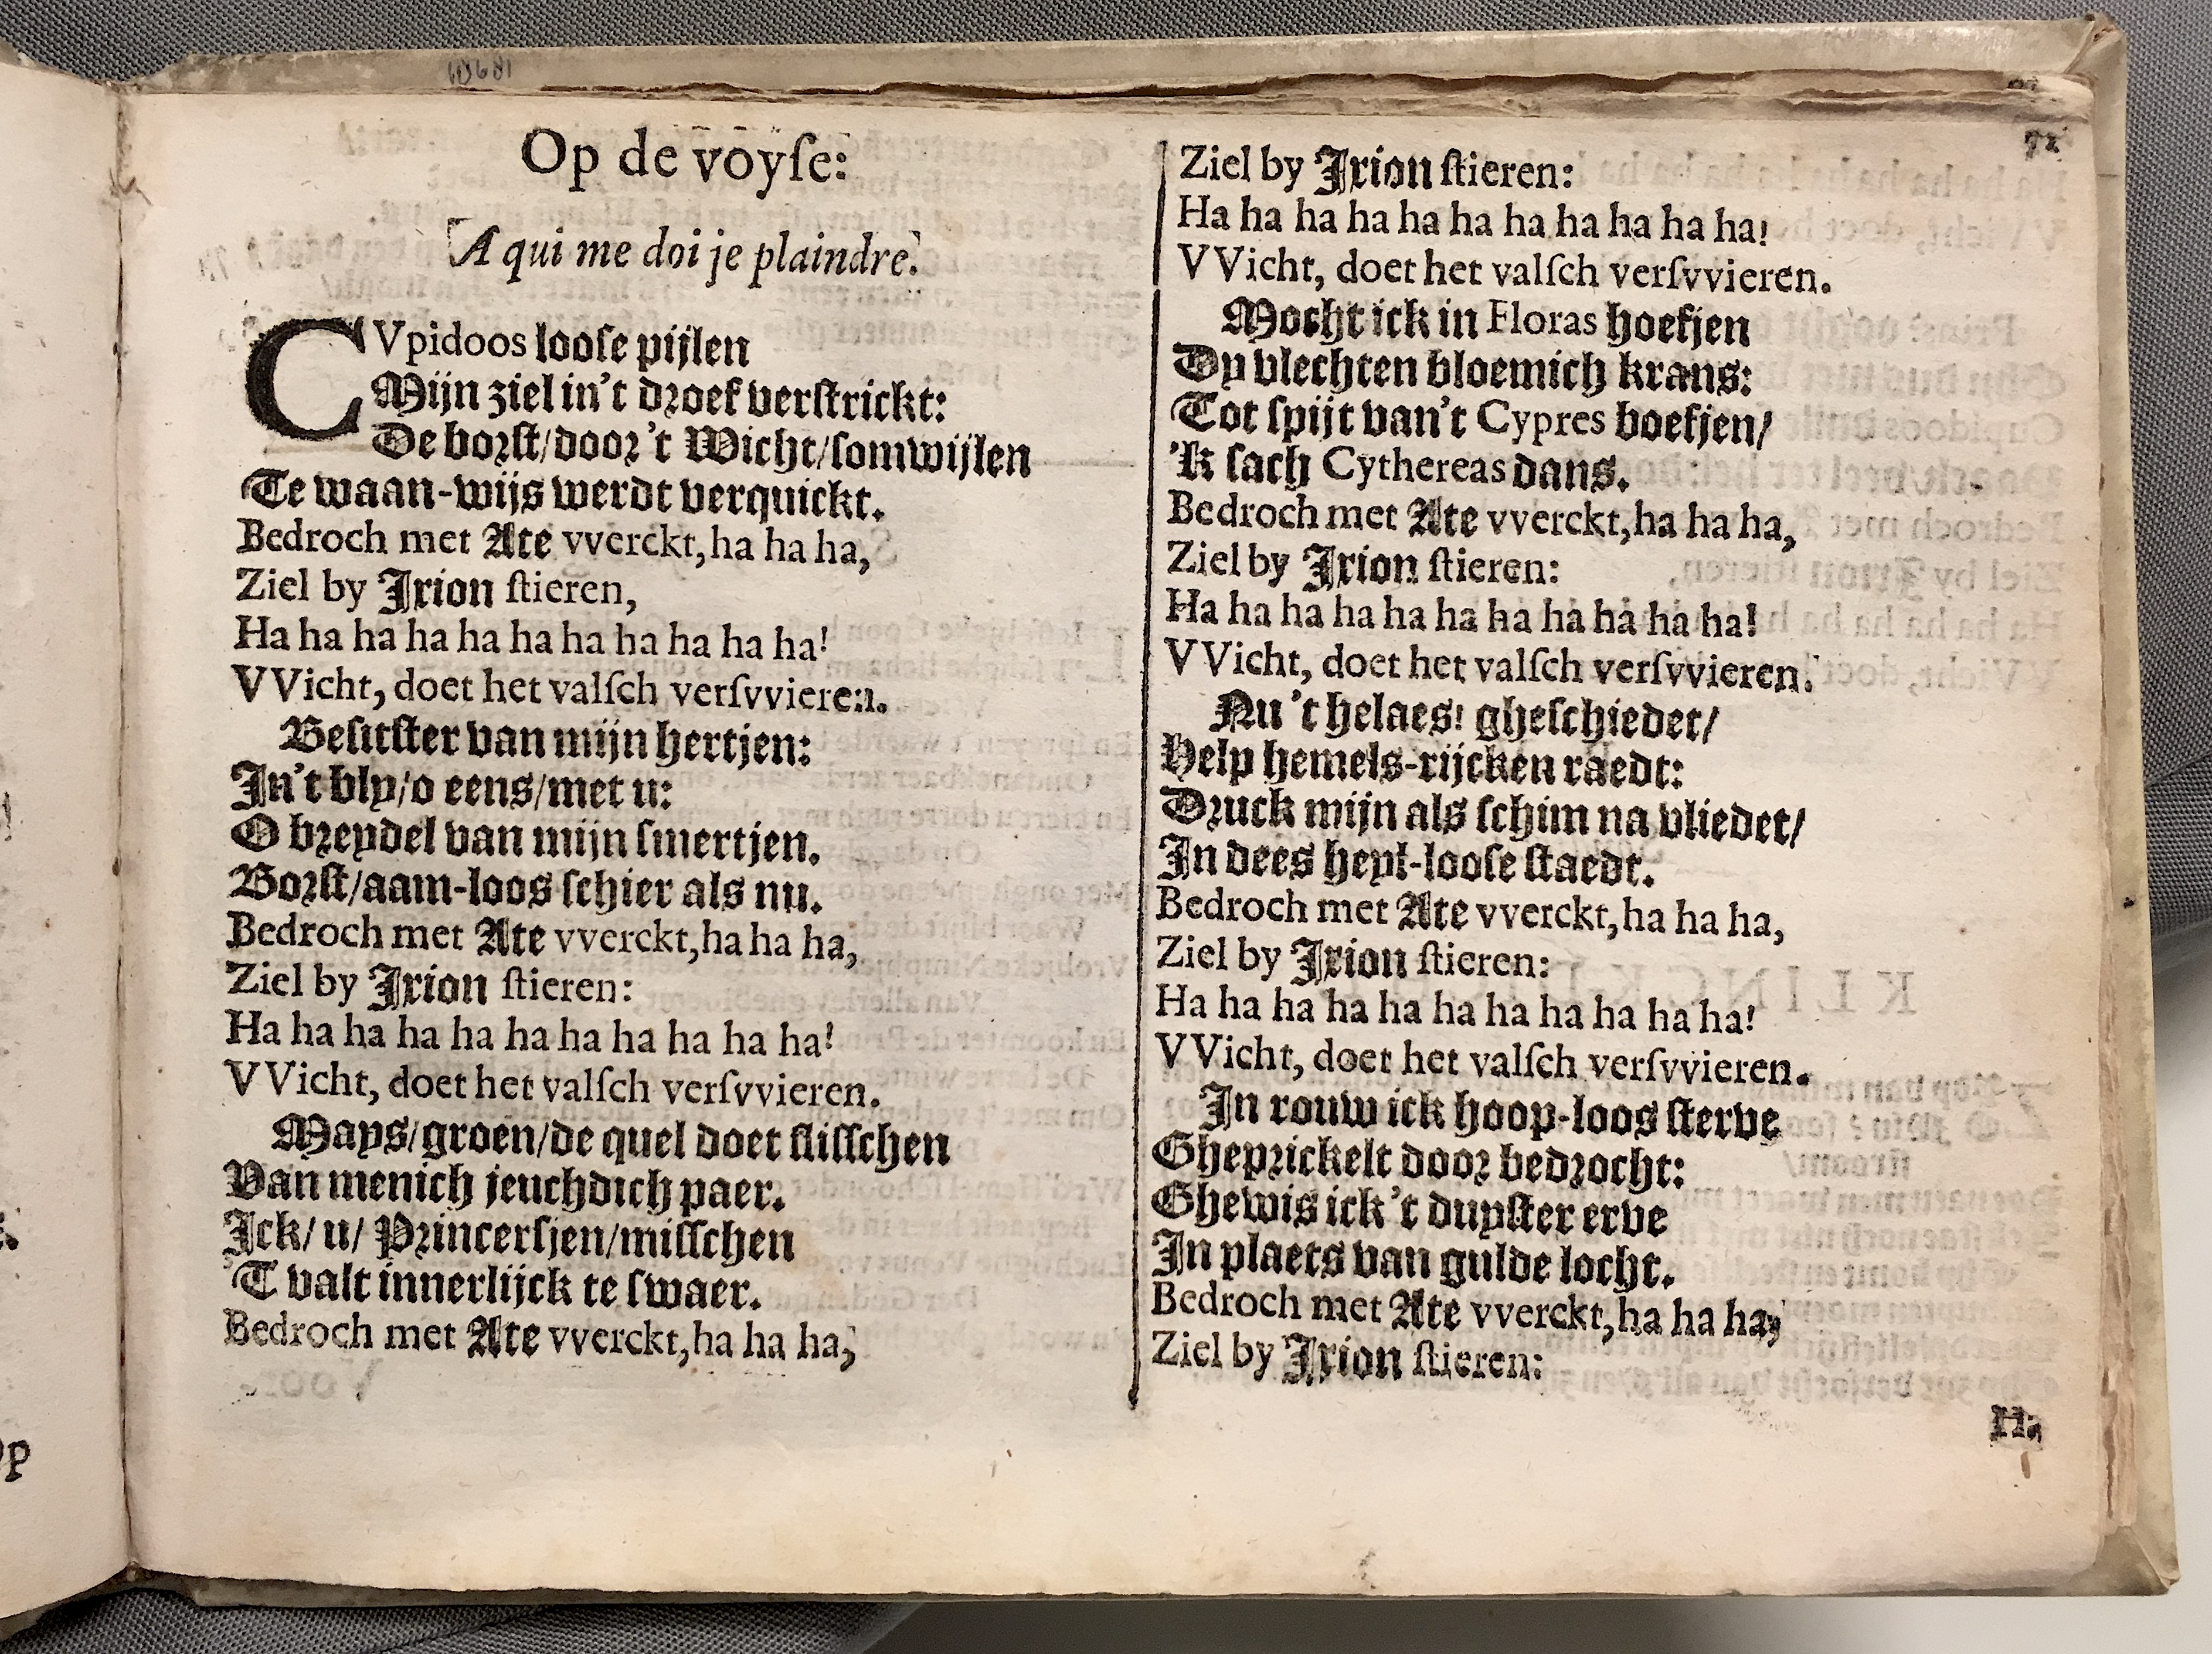 Op de voyſe:
A qui me doi je plaindre.
CVpidoos looſe pijlen
Mijn ziel in't droef verſtrickt:
De borſt/door 't Wicht/ſomwijlen
Te waan-wijs werdt verquickt.
Bedroch met Ate vverckt, ha ha ha,
Ziel by Jxion ſtieren,
Ha ha ha ha ha ha ha ha ha ha ha!
VVicht, doet het valſch verſvvieren.
Beſitſter van mijn hertjen:
In't bly/o eens/met u:
O breydel van mijn ſmertjen.
Borſt/aam-loos ſchier als nu.
Bedroch met Ate vverckt, ha ha ha,
Ziel by Jxion ſtieren:
Ha ha ha ha ha ha ha ha ha ha ha!
VVicht, doet het valſch verſvvieren.
Mays/groen/de quel doet ſliſſchen
Van menich jeuchdich paer.
Ick/ u/ Princerſjen/miſſchen
'T valt innerlijck te ſwaer.
Bedroch met Ate vverckt, ha ha ha,
72
Ziel by Jxion ſtieren:
Ha ha ha ha ha ha ha ha ha ha ha!
VVicht, doet het valſch verſvvieren.
Mocht ick in Floras hoefjen
Dy vlechten bloemich krans:
Tot ſpijt van't Cypres boefjen/
'K ſach Cythereas dans.
Bedroch met Ate vverckt, ha ha ha,
Ziel by Jxion ſtieren:
Ha ha ha ha ha ha ha ha ha ha ha!
VVicht, doet het valſch verſvvieren.
Nu 't helaes! gheſchiedet/
Help hemels-rijcken raedt:
Druck mijn als ſchim na vliedet/
In dees heyl-looſe ſtaedt.
Bedroch met Ate vverckt, ha ha ha,
Ziel by Jxion ſtieren:
Ha ha ha ha ha ha ha ha ha ha ha!
VVicht, doet het valſch verſvvieren.
In rouw ick hoop-loos ſterve
Gheprickelt door bedrocht:
Ghewis ick 't duyſter erve
In plaets van gulde locht.
Bedroch met Ate vverckt, ha ha ha,
Ziel by Jxion ſtieren:
Ha